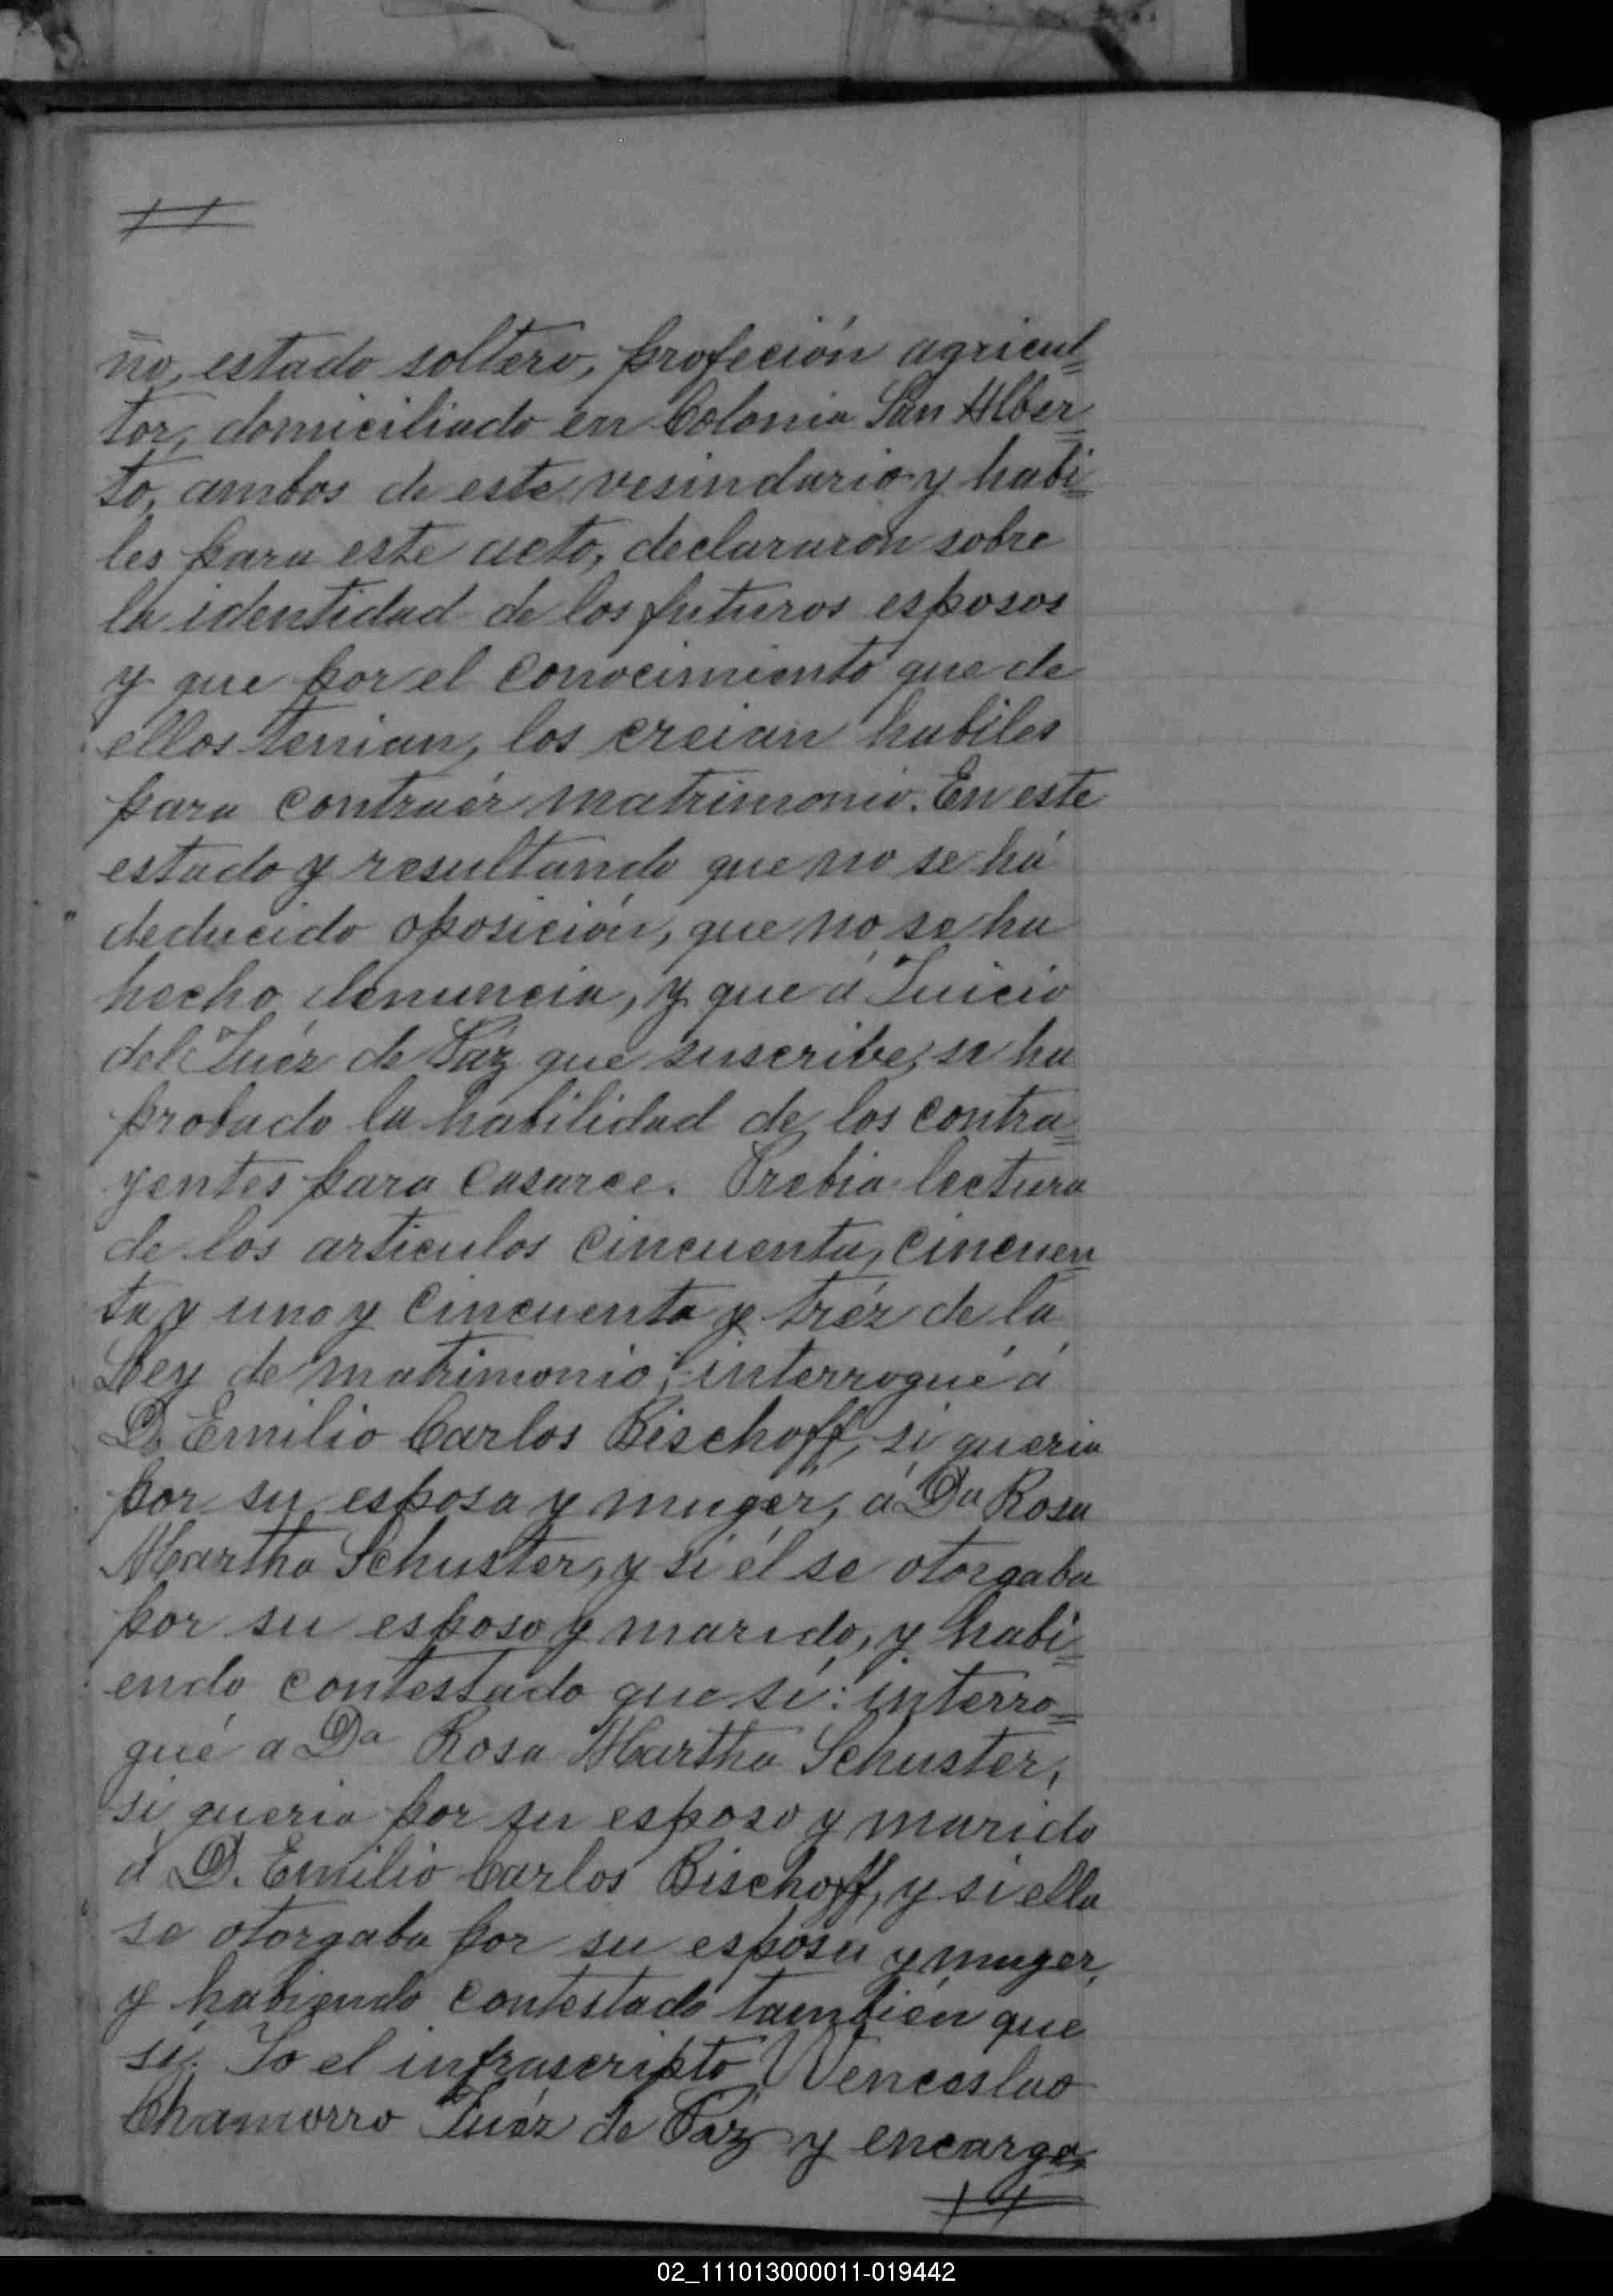 ño, estado soltero, profeción agricul=
tor, domiciliado en Colonia San Alber=
to, ambos de este vesindario y habi=
les para este acto, declararon sobre
la identidad de los futuros esposos
y que por el conocimiento que de
ellos tenian, los creian habiles
para contraér matrimonio. En este
estado y resultando que no se há
deducido oposición, que no se ha
hecho denuncia, y que á Juicio
del Juéz de Páz que suscribe, se ha
probado la habilidad de los contra=
yentes para casarce. Prebia lectura
de los articulos cincuenta, cincuen=
ta y uno y cincuenta y tréz de la
Ley de matrimonio; interrogué á
D. Emilio Carlos Bischoff, si queria
por su esposa y muger, á Da Rosa
Martha Schuster, y si él se otorgaba
por su esposo y marido, y habi=
endo contestado que sí: interro=
gué a Da Rosa Martha Schuster,
si queria por su esposo y marido
á D. Emilio Carlos Bischoff, y si ella
se otorgaba por su esposa y muger,
y habiendo contestado también que
sí. Yo el infrascripto Wenceslao
Chamorro Juéz de Páz y encarga=
02_111013000011-019442